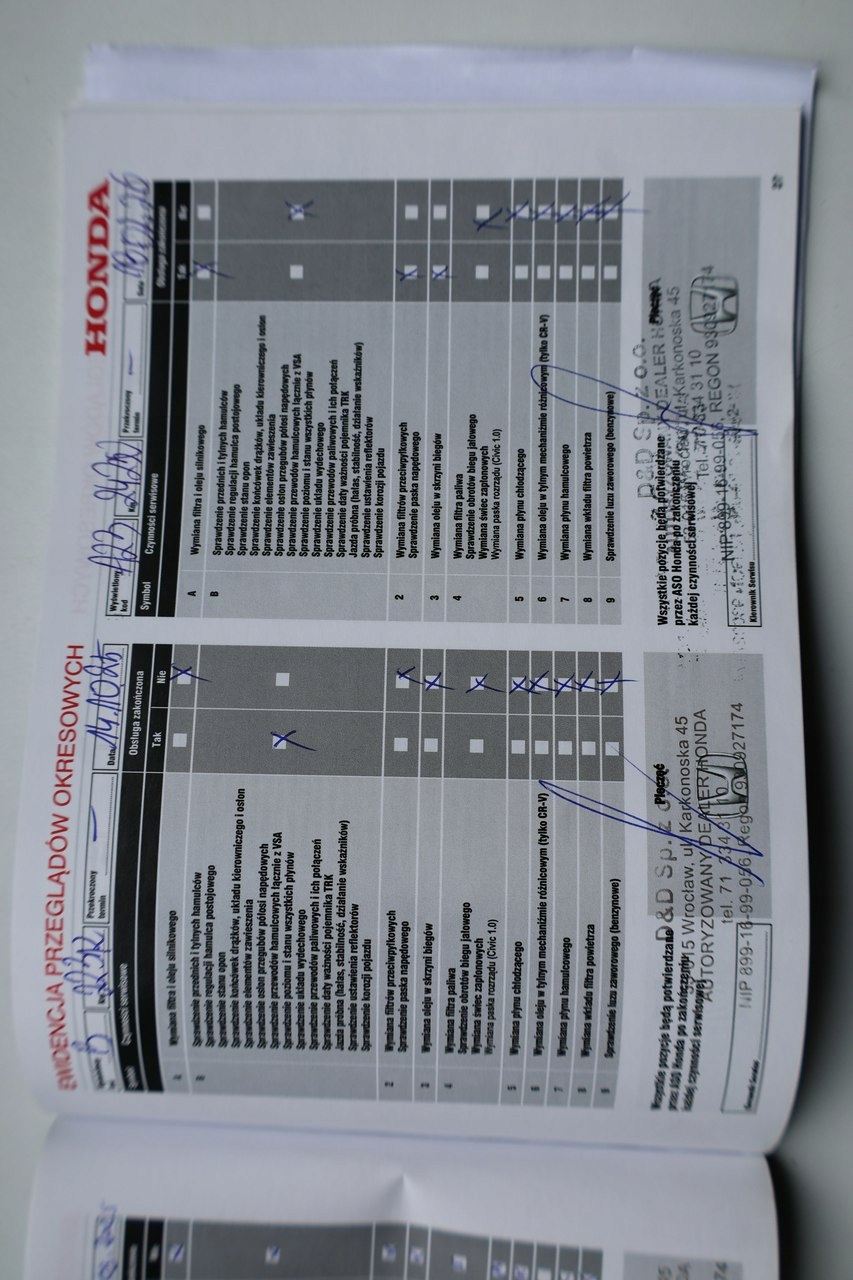 EWIDENCJA PRZEGLĄDÓW OKRESOWYCH
B
Przekroczony
termin
Data
14.10.25
Symbol
Czynności serwisowe
Obsługa zakończona
Tak
Nie
A
Wymiana filtra i oleju silnikowego
B
Sprawdzenie przednich i tylnych hamulców
Sprawdzenie regulacji hamulca postojowego
Sprawdzenie stanu opon
Sprawdzenie końcówek drążków, układu kierowniczego i osłon
Sprawdzenie elementów zawieszenia
Sprawdzenie osłon przegubów półosi napędowych
Sprawdzenie przewodów hamulcowych łącznie z VSA
Sprawdzenie poziomu i stanu wszystkich płynów
Sprawdzenie układu wydechowego
Sprawdzenie przewodów paliwowych i ich połączeń
Sprawdzenie daty ważności pojemnika TRK
Jazda próbna (hałas, stabilność, działanie wskaźników)
Sprawdzenie ustawienia reflektorów
Sprawdzenie korozji pojazdu
2
Wymiana filtrów przeciwpyłkowych
Sprawdzenie paska napędowego
3
Wymiana oleju w skrzyni biegów
4
Wymiana filtra paliwa
Sprawdzenie obrotów biegu jałowego
Wymiana świec zapłonowych
Wymiana paska rozrządu (Civic 1.0)
5
Wymiana płynu chłodzącego
6
Wymiana oleju w tylnym mechanizmie różnicowym (tylko CR-V)
7
Wymiana płynu hamulcowego
8
Wymiana wkładu filtra powietrza
9
Sprawdzenie luzu zaworowego (benzynowe)
Wszystkie pozycje będą potwierdzane
przez ASO Honda po zakończeniu
każdej czynności serwisowej
Pieczęć
D&D Sp. z o.o.
Wrocław, ul. Karkonoska 45
AUTORYZOWANY DEALER HONDA
tel. 71 334 31 10
NIP 899-16-99-056, Regon 930927174
Kierownik Serwisu
HONDA
Wyświetlony
kod
A23
Przekroczony
termin
Data
Symbol
Czynności serwisowe
Obsługa zakończona
Tak
Nie
A
Wymiana filtra i oleju silnikowego
B
Sprawdzenie przednich i tylnych hamulców
Sprawdzenie regulacji hamulca postojowego
Sprawdzenie stanu opon
Sprawdzenie końcówek drążków, układu kierowniczego i osłon
Sprawdzenie elementów zawieszenia
Sprawdzenie osłon przegubów półosi napędowych
Sprawdzenie przewodów hamulcowych łącznie z VSA
Sprawdzenie poziomu i stanu wszystkich płynów
Sprawdzenie układu wydechowego
Sprawdzenie przewodów paliwowych i ich połączeń
Sprawdzenie daty ważności pojemnika TRK
Jazda próbna (hałas, stabilność, działanie wskaźników)
Sprawdzenie ustawienia reflektorów
Sprawdzenie korozji pojazdu
2
Wymiana filtrów przeciwpyłkowych
Sprawdzenie paska napędowego
3
Wymiana oleju w skrzyni biegów
4
Wymiana filtra paliwa
Sprawdzenie obrotów biegu jałowego
Wymiana świec zapłonowych
Wymiana paska rozrządu (Civic 1.0)
5
Wymiana płynu chłodzącego
6
Wymiana oleju w tylnym mechanizmie różnicowym (tylko CR-V)
7
Wymiana płynu hamulcowego
8
Wymiana wkładu filtra powietrza
9
Sprawdzenie luzu zaworowego (benzynowe)
Wszystkie pozycje będą potwierdzane
przez ASO Honda po zakończeniu
każdej czynności serwisowej
Pieczęć
D&D SP. z o.o.
DEALER
ul. Karkonoska 45
Tel. 71 334 31 10
NIP 899-16-99-056, REGON 930927174
Kierownik Serwisu